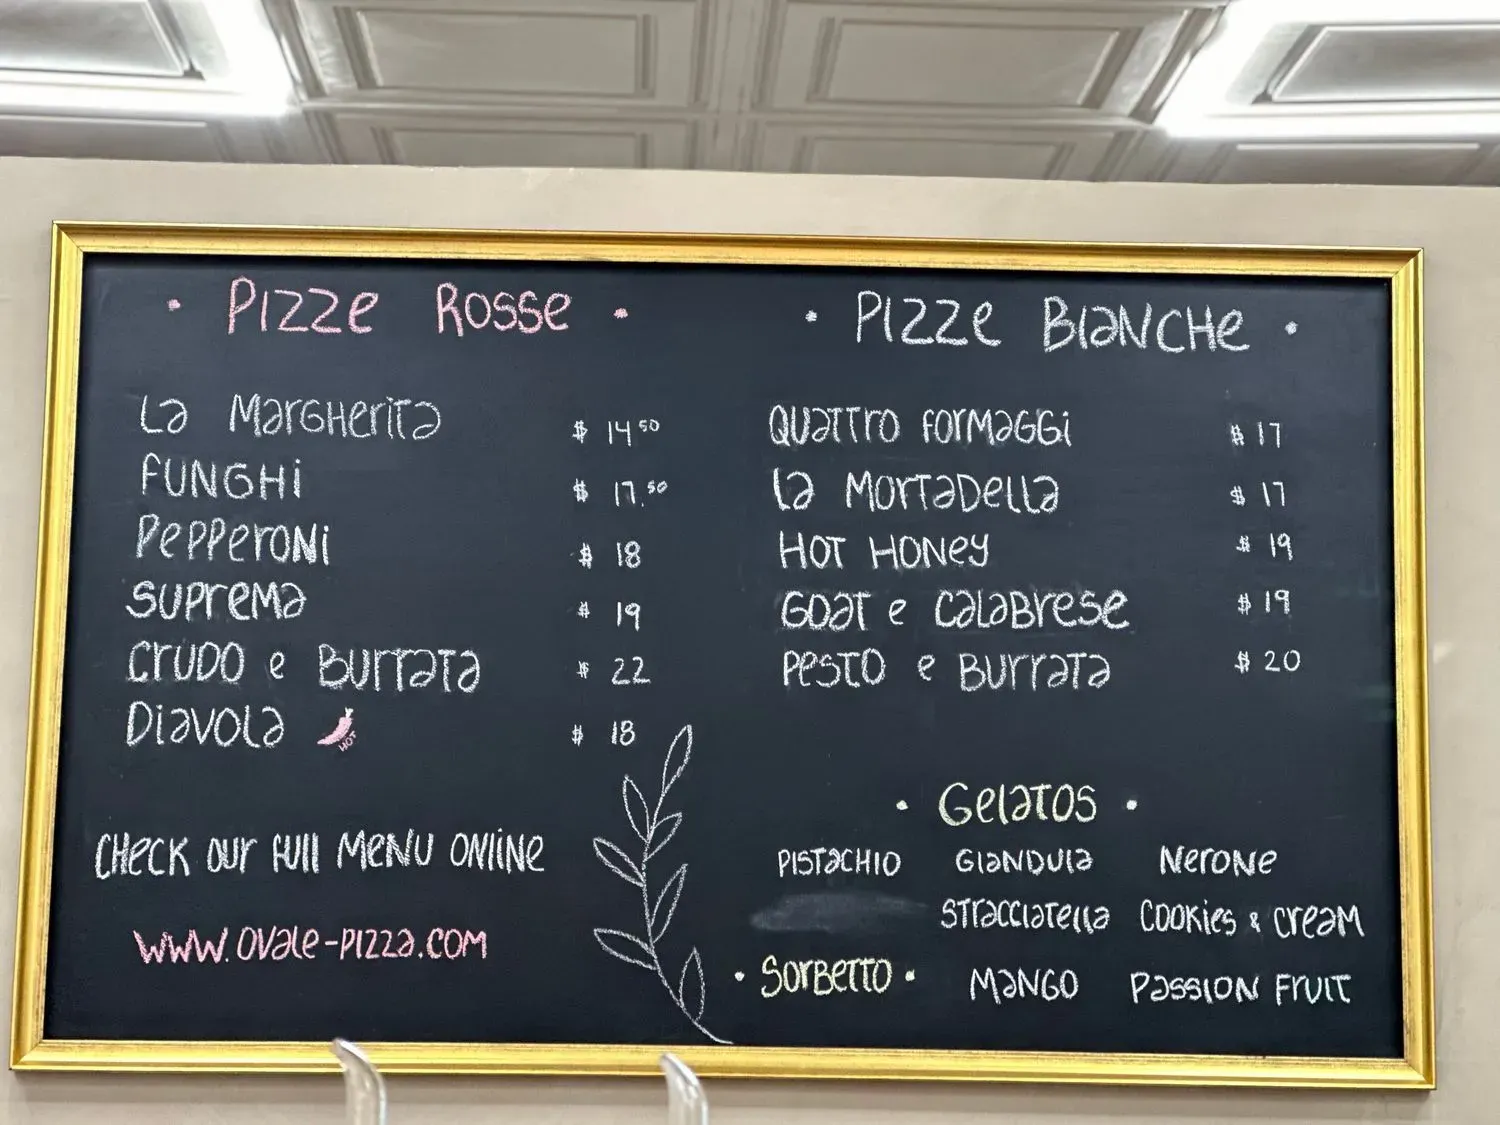 · Pizze Rosse ·
La Margherita $ 14 50
Funghi $ 17.50
Pepperoni $ 18
Suprema $ 19
Crudo e Burrata $ 22
Diavola HOT $ 18
Check our full menu online
www.ovale-pizza.com
· Pizze Bianche ·
Quattro Formaggi $ 17
La Mortadella $ 17
Hot Honey $ 19
Goat e Calabrese $ 19
Pesto e Burrata $ 20
· Gelatos ·
Pistachio Gianduia Nerone
Stracciatella Cookies & Cream
· Sorbetto · Mango Passion Fruit